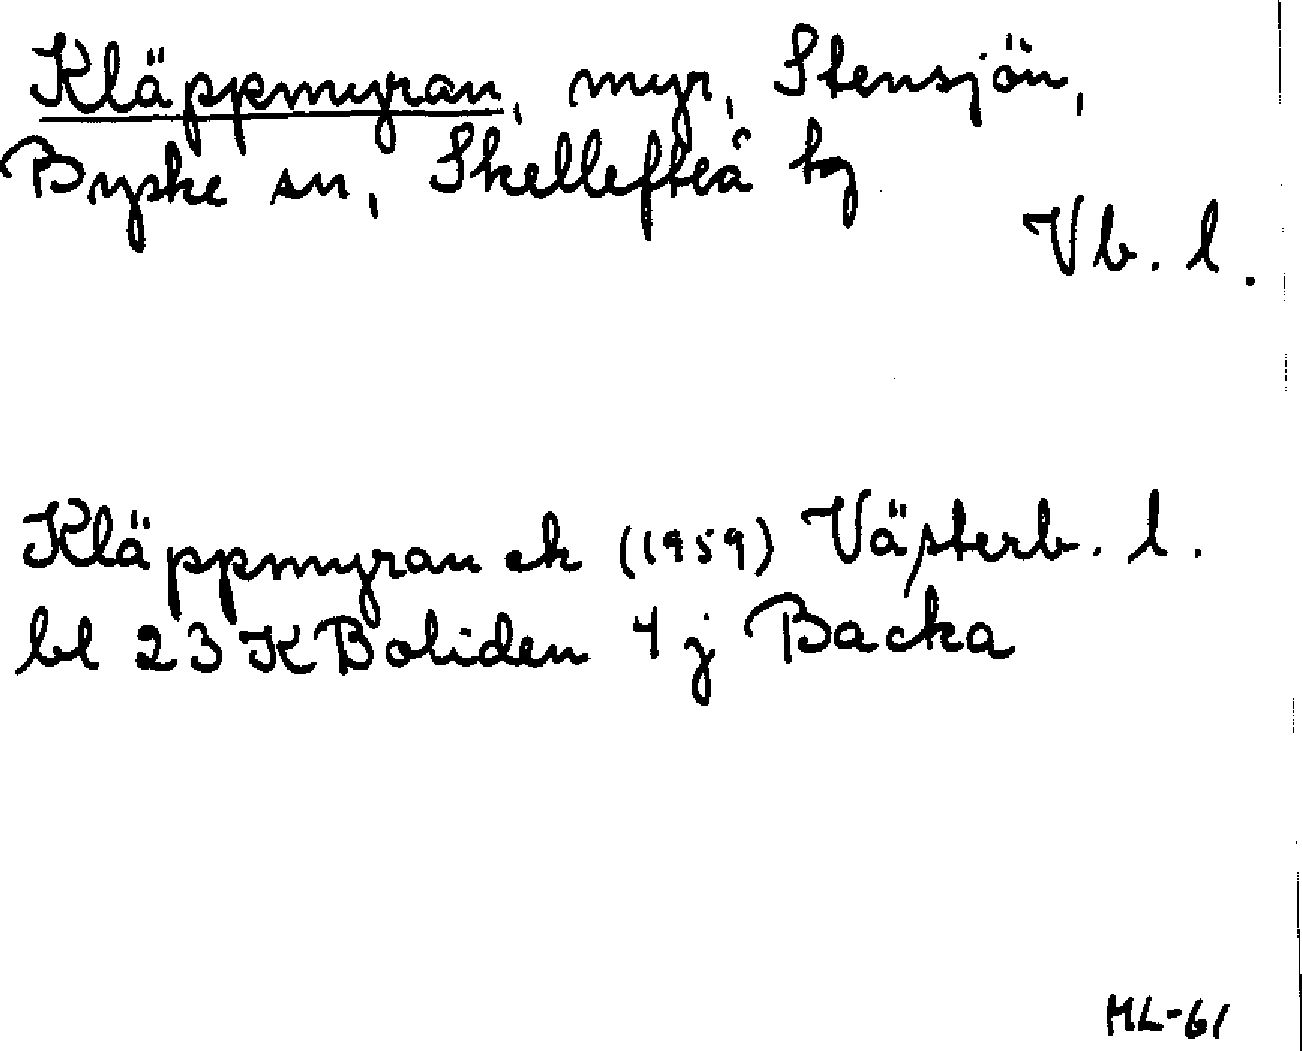 Kläppmyran, myr, Stensjön,
Byske sn, Skellefteå tg
Vb. l.
Kläppmyran ek (1959) Västerb. l.
bl 23 K Boliden 4 j Backa
ML-61